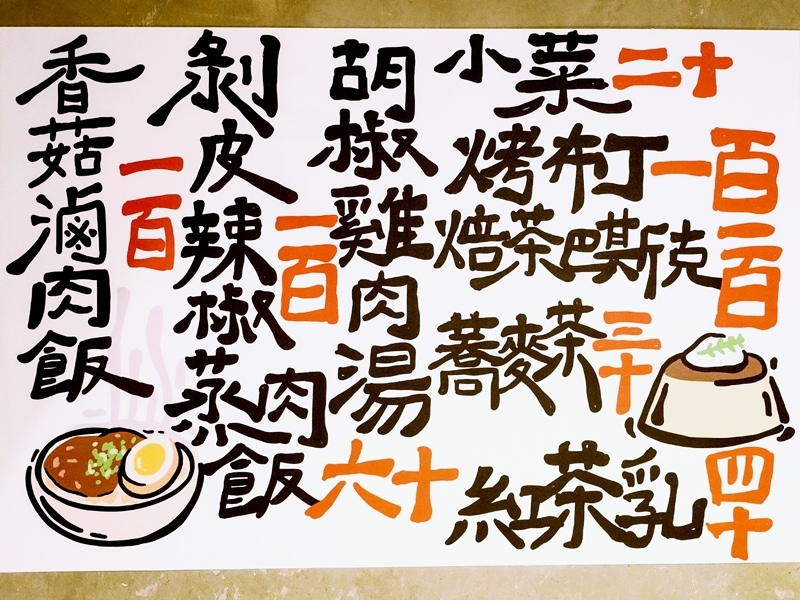 香菇滷肉飯 一百
剝皮辣椒蒸肉飯 一百
胡椒雞肉湯 六十
小菜 二十
烤布丁 一百
焙茶巴斯克 一百
蕎麥茶 三十
紅茶乳 四十